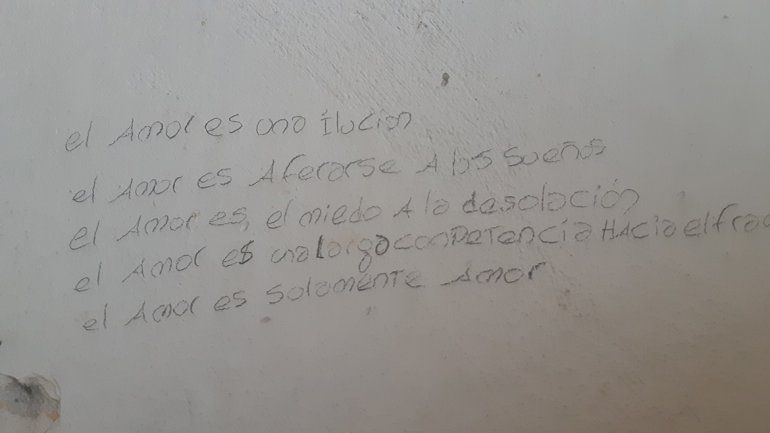 el Amor es una ilucion
el Amor es Aferarse A los sueños
el Amor es, el miedo A la desolación
el Amor es una larga conpetencia HAcia el frac
el Amor es solamente Amor